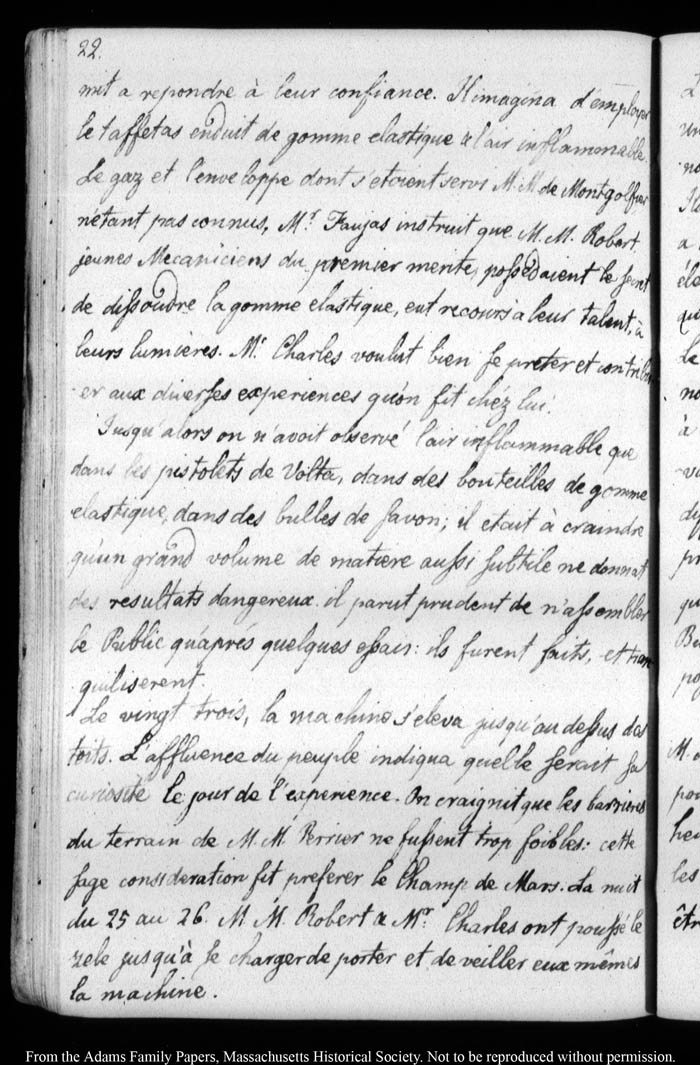 22.
mit a repondre à leur confiance. Il imagina d'employer
le taffetas enduit de gomme elastique & l'air inflammable.
Le gaz et l'enveloppe dont s'etoient servi M. M. de Montgolfier
n'étant pas connus, Mr. Faujas instruit que M. M. Robert
jeunes Mecaniciens du premier merite, possedaient le secret
de dissoudre la gomme elastique, eut recours a leur talent, à
leurs lumières. Mr. Charles voulut bien se preter et contribu
er aux diverses experiences qu'on fit chéz lui.
Jusqu'alors on n'avoit observé l'air inflammable que
dans les pistolets de Volta, dans des bouteilles de gomme
elastique, dans des bulles de savon; il etait à craindre
qu'un grand volume de matiere aussi subtile ne donnat
des resultats dangereux. il parut prudent de n'assembler
le Public qu'aprés quelques essais: ils furent faits, et tran
quiliserent.
Le vingt trois, la machine s'eleva jusqu'au dessus des
toits. L'affluence du peuple indiqua quelle serait sa
curiosité le jour de l'experience. On craignit que les barrieres
du terrain de M. M. Perrier ne fussent trop foibles: cette
sage consideration fit preferer le Champ de Mars. La nuit
du 25 au 26. M. M. Robert & Mr. Charles ont poussé le
zele jusqu'à se charger de porter et de veiller eux mêmes
la machine.
From the Adams Family Papers, Massachusetts Historical Society. Not to be reproduced without permission.